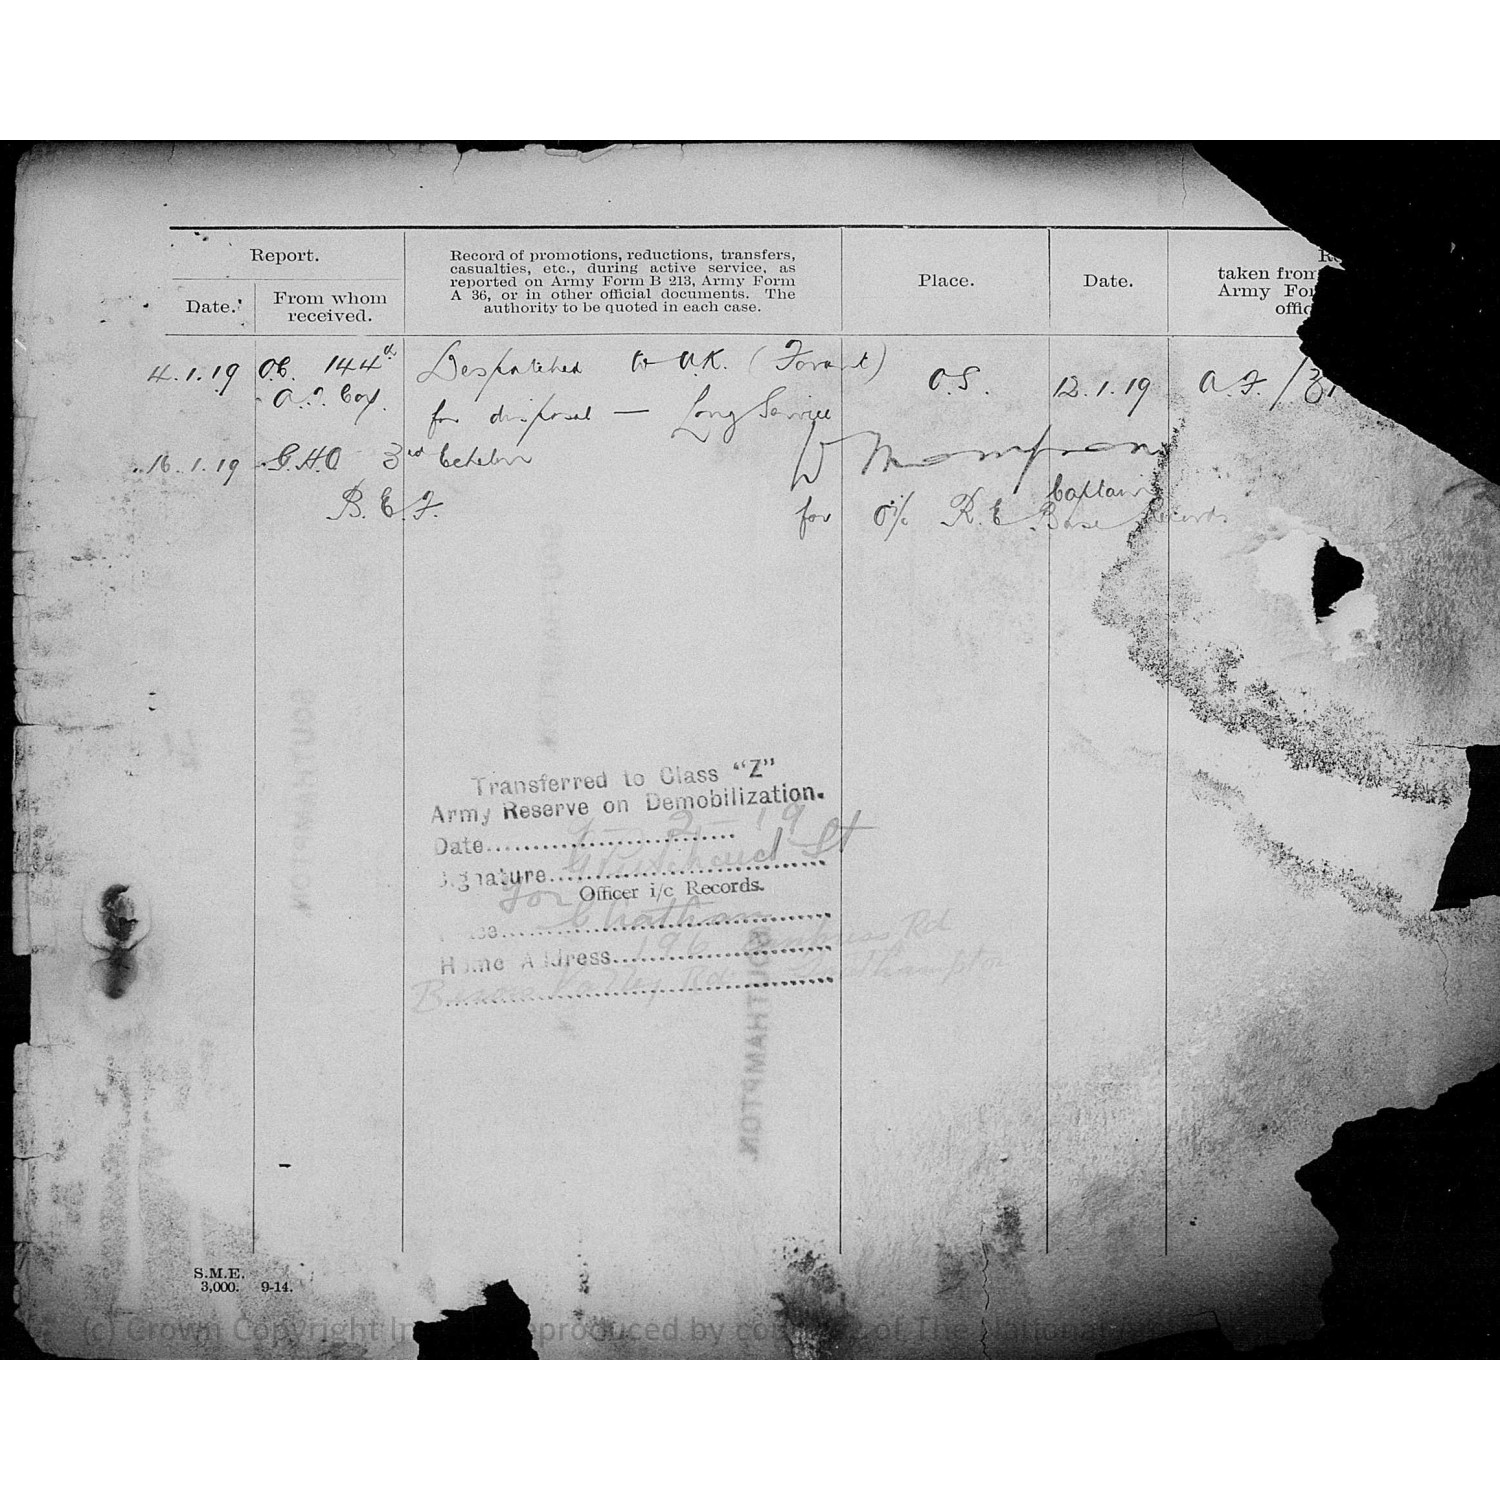 Report.
Date.
From whom
received.
Record of promotions, reductions, transfers,
casualties, etc., during active service, as
reported on Army Form B 213, Army Form
A 36, or in other official documents. The
authority to be quoted in each case.
Place.
Date.
taken from
Army For
offic
4.1.19 O.C. 144th Despatched to U.K. (Fovant) O.S. 12.1.19 A.F./
A.T. Coy. for disposal — Long Service
16.1.19 G.H.Q 3rd Echelon
B.E.F. W Thompson
Captain
for O i/c R.E Base Records
Transferred to Class "Z"
Army Reserve on Demobilization.
Date 9 - 2 - 19
Signature
for Officer i/c Records.
Chatham
Home Address 196 Rd
Valley Rd. Southampton
SOUTHAMPTON
SOUTHAMPTON.
S.M.E.
3,000. 9-14.
(c) Crown Copyright reproduced by of The National